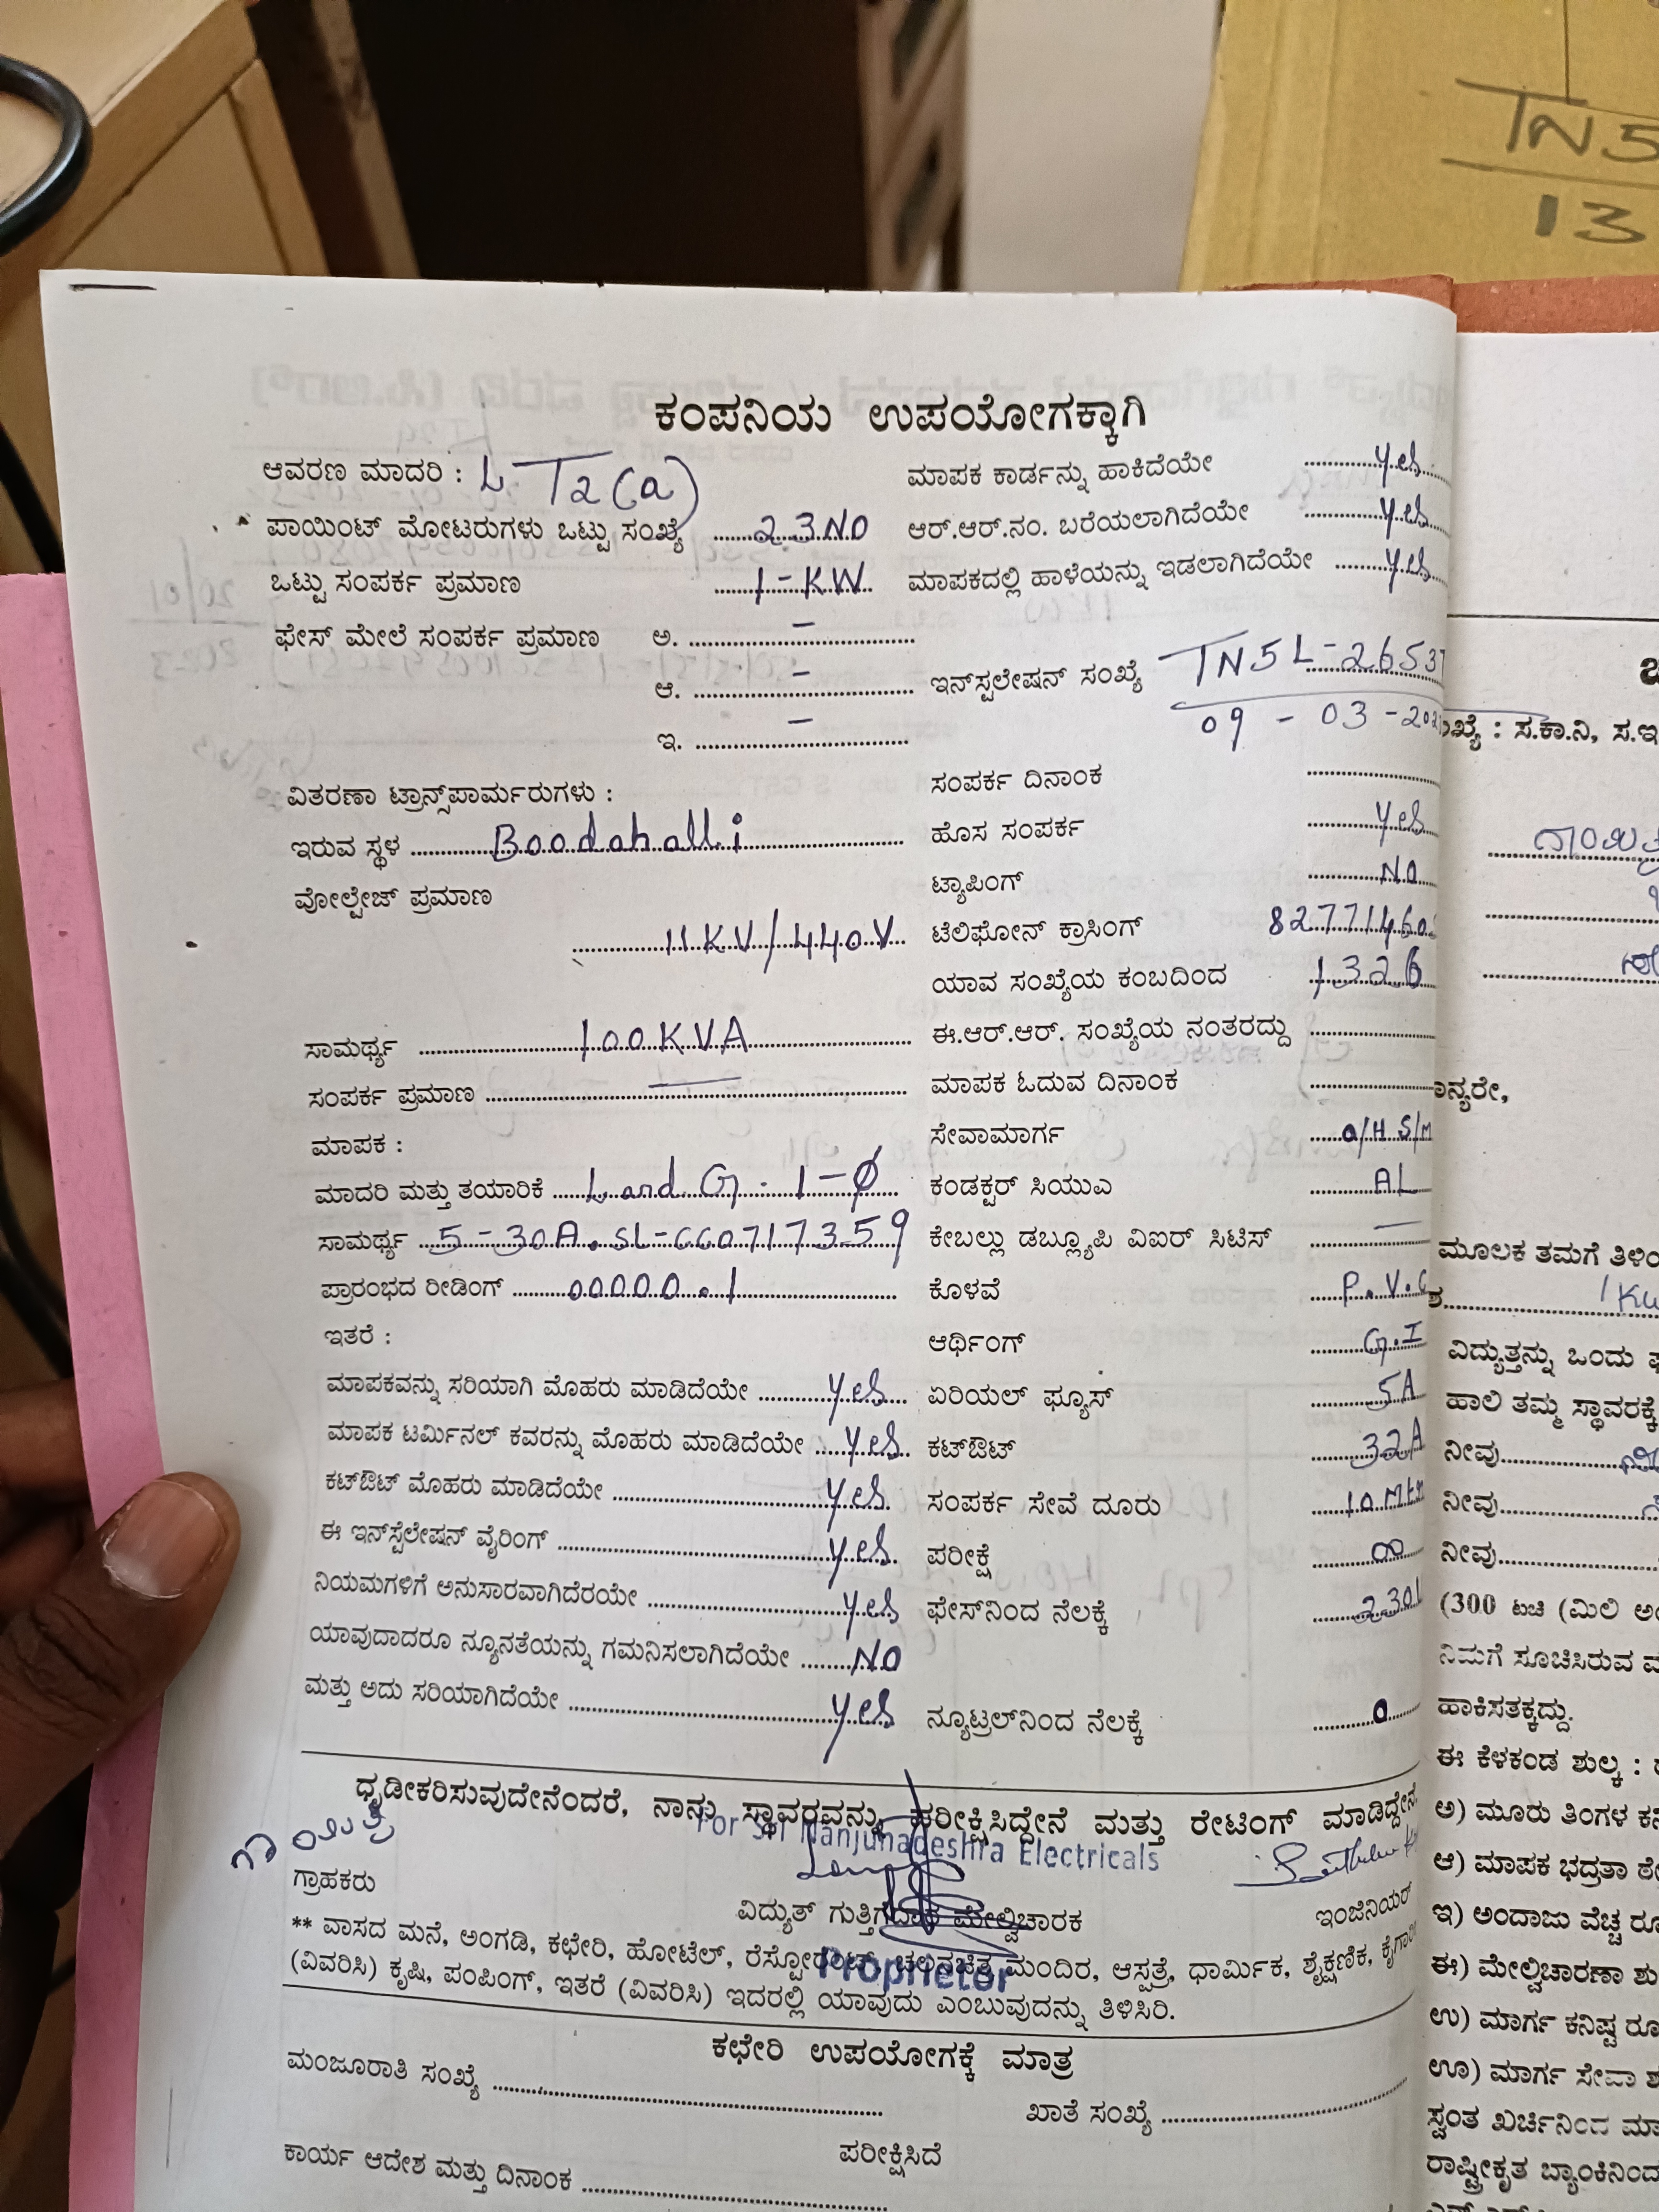 TN5
13
ಕಂಪನಿಯ ಉಪಯೋಗಕ್ಕಾಗಿ
ಆವರಣ ಮಾದರಿ : LT2(a)
ಮಾಪಕ ಕಾರ್ಡನ್ನು ಹಾಕಿದೆಯೇ yes
ಪಾಯಿಂಟ್ ಮೋಟರುಗಳು ಒಟ್ಟು ಸಂಖ್ಯೆ 23NO
ಆರ್.ಆರ್.ನಂ. ಬರೆಯಲಾಗಿದೆಯೇ yes
ಒಟ್ಟು ಸಂಪರ್ಕ ಪ್ರಮಾಣ 1-KW.
ಮಾಪಕದಲ್ಲಿ ಹಾಳೆಯನ್ನು ಇಡಲಾಗಿದೆಯೇ yes
ಫೇಸ್ ಮೇಲೆ ಸಂಪರ್ಕ ಪ್ರಮಾಣ ಅ. -
ಆ. -
ಇನ್‌ಸ್ಟಲೇಷನ್ ಸಂಖ್ಯೆ TN5L-26537
09-03-202
ಇ. -
ವಿತರಣಾ ಟ್ರಾನ್ಸ್‌ಪಾರ್ಮರುಗಳು :
ಸಂಪರ್ಕ ದಿನಾಂಕ
ಇರುವ ಸ್ಥಳ Boodahalli
ಹೊಸ ಸಂಪರ್ಕ yes
ವೋಲ್ಟೇಜ್ ಪ್ರಮಾಣ
ಟ್ಯಾಪಿಂಗ್ NO
11KV/440V
ಟೆಲಿಫೋನ್ ಕ್ರಾಸಿಂಗ್ 82771460
ಯಾವ ಸಂಖ್ಯೆಯ ಕಂಬದಿಂದ 1326
ಸಾಮರ್ಥ್ಯ 100KVA
ಈ.ಆರ್.ಆರ್. ಸಂಖ್ಯೆಯ ನಂತರದ್ದು
ಸಂಪರ್ಕ ಪ್ರಮಾಣ —
ಮಾಪಕ ಓದುವ ದಿನಾಂಕ
ಮಾಪಕ :
ಸೇವಾಮಾರ್ಗ O/H S/M
ಮಾದರಿ ಮತ್ತು ತಯಾರಿಕೆ L and G. 1-Ø
ಕಂಡಕ್ಟರ್ ಸಿಯುಎ AL
ಸಾಮರ್ಥ್ಯ 5-30A. SL-CC0717359
ಕೇಬಲ್ಲು ಡಬ್ಲ್ಯೂಪಿ ವಿಐರ್ ಸಿಟಿಸ್ —
ಪ್ರಾರಂಭದ ರೀಡಿಂಗ್ 00000.1
ಕೊಳವೆ P.V.C
ಇತರೆ :
ಆರ್ಥಿಂಗ್ G.I
ಮಾಪಕವನ್ನು ಸರಿಯಾಗಿ ಮೊಹರು ಮಾಡಿದೆಯೇ yes
ಏರಿಯಲ್ ಫ್ಯೂಸ್ 5A
ಮಾಪಕ ಟರ್ಮಿನಲ್ ಕವರನ್ನು ಮೊಹರು ಮಾಡಿದೆಯೇ yes
ಕಟ್‌ಔಟ್ 32A
ಕಟ್‌ಔಟ್ ಮೊಹರು ಮಾಡಿದೆಯೇ yes
ಸಂಪರ್ಕ ಸೇವೆ ದೂರು 10 Mtr
ಈ ಇನ್‌ಸ್ಟೆಲೇಷನ್ ವೈರಿಂಗ್ yes
ಪರೀಕ್ಷೆ ∞
ನಿಯಮಗಳಿಗೆ ಅನುಸಾರವಾಗಿದೆರಯೇ yes
ಫೇಸ್‌ನಿಂದ ನೆಲಕ್ಕೆ 230
ಯಾವುದಾದರೂ ನ್ಯೂನತೆಯನ್ನು ಗಮನಿಸಲಾಗಿದೆಯೇ NO
ಮತ್ತು ಅದು ಸರಿಯಾಗಿದೆಯೇ yes
ನ್ಯೂಟ್ರಲ್‌ನಿಂದ ನೆಲಕ್ಕೆ 0
ಧೃಡೀಕರಿಸುವುದೇನೆಂದರೆ, ನಾನು ಸ್ಥಾವರವನ್ನು ಪರೀಕ್ಷಿಸಿದ್ದೇನೆ ಮತ್ತು ರೇಟಿಂಗ್ ಮಾಡಿದ್ದೇನೆ
ಗಾಯತ್ರಿ
For Sri Nanjundeshra Electricals
ಗ್ರಾಹಕರು
ವಿದ್ಯುತ್ ಗುತ್ತಿಗೆದಾರ ಮೇಲ್ವಿಚಾರಕ
ಇಂಜಿನಿಯರ್
** ವಾಸದ ಮನೆ, ಅಂಗಡಿ, ಕಛೇರಿ, ಹೋಟೆಲ್, ರೆಸ್ಟೋರೆಂಟ್, ಚಲನಚಿತ್ರ ಮಂದಿರ, ಆಸ್ಪತ್ರೆ, ಧಾರ್ಮಿಕ, ಶೈಕ್ಷಣಿಕ,
Proprietor
(ವಿವರಿಸಿ) ಕೃಷಿ, ಪಂಪಿಂಗ್, ಇತರೆ (ವಿವರಿಸಿ) ಇದರಲ್ಲಿ ಯಾವುದು ಎಂಬುವುದನ್ನು ತಿಳಿಸಿರಿ.
ಕಛೇರಿ ಉಪಯೋಗಕ್ಕೆ ಮಾತ್ರ
ಮಂಜೂರಾತಿ ಸಂಖ್ಯೆ
ಖಾತೆ ಸಂಖ್ಯೆ
ಪರೀಕ್ಷಿಸಿದೆ
ಕಾರ್ಯ ಆದೇಶ ಮತ್ತು ದಿನಾಂಕ
ಸ.ಕಾ.ನಿ, ಸ.ಇ
ಮೂಲಕ ತಮಗೆ
1 KW
ವಿದ್ಯುತ್ತನ್ನು ಒಂದು
ಹಾಲಿ ತಮ್ಮ ಸ್ಥಾವರಕ್ಕೆ
ನೀವು
ನೀವು
ನೀವು
(300 ಟಚಿ (ಮಿಲಿ
ನಿಮಗೆ ಸೂಚಿಸಿರುವ
ಹಾಕಿಸತಕ್ಕದ್ದು.
ಈ ಕೆಳಕಂಡ ಶುಲ್ಕ :
ಅ) ಮೂರು ತಿಂಗಳ
ಆ) ಮಾಪಕ ಭದ್ರತಾ
ಇ) ಅಂದಾಜು ವೆಚ್ಚ
ಈ) ಮೇಲ್ವಿಚಾರಣಾ
ಉ) ಮಾರ್ಗ ಕನಿಷ್ಟ
ಊ) ಮಾರ್ಗ ಸೇವಾ
ಸ್ವಂತ ಖರ್ಚಿನಿಂದ
ರಾಷ್ಟ್ರೀಕೃತ ಬ್ಯಾಂಕಿನಿಂದ